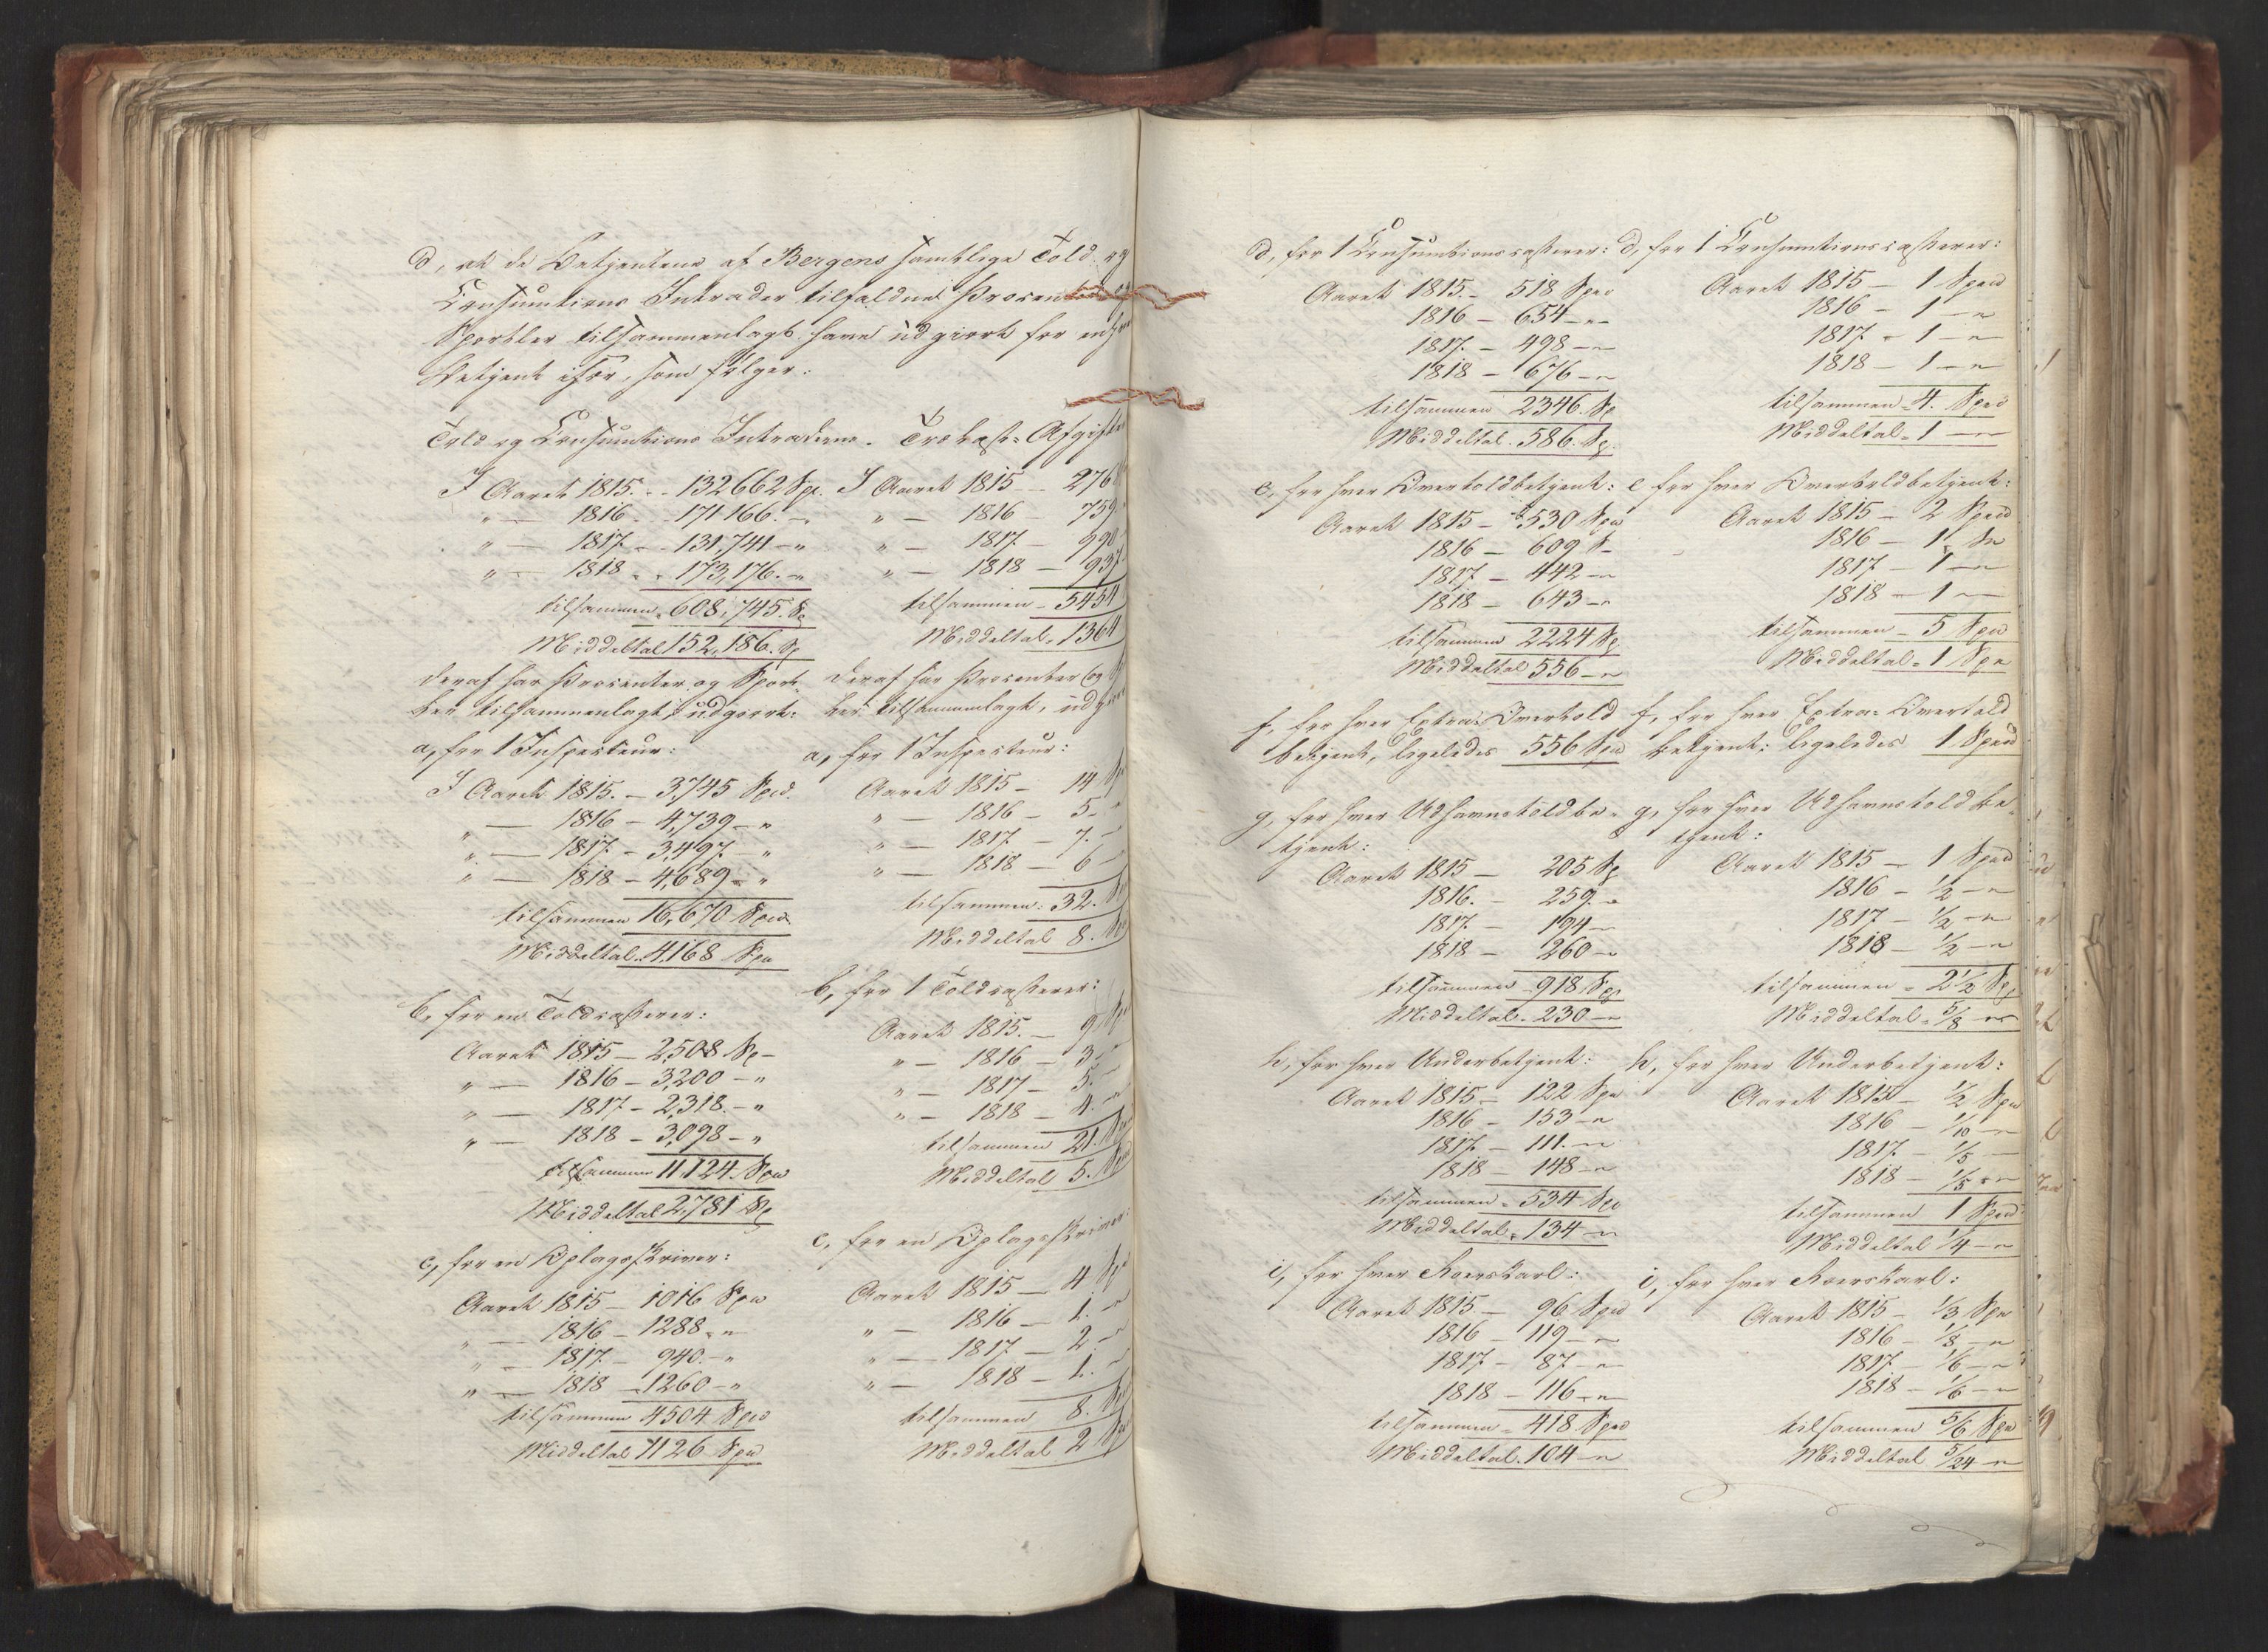 d, at de Betjentene af Bergens samtlige Told og
Consumtions Intrader tilfaldne Procenter og
Sportler tilsammenlagt have udgiort for enhver
Betjent især, som følger:
Told og Consumtions Intraderne.
I Aaret 1815. - 132662 Spe.
" — 1816. - 171166. - "
" — 1817. - 131,741 - "
" — 1818 - 173,176. - "
tilsammen 608,745. Sp
Middeltal 152,186. Sp
deraf har Procenter og Sport-
ler tilsammenlagt, udgiort:
a, for 1 Inspecteur:
I Aaret 1815. - 3,745 Spd.
" — 1816 - 4,739 - "
" — 1817. - 3,497. - "
" — 1818 - 4,689 - "
tilsammen 16,670 Spd.
Middeltal. 4,168 Spd
b, for en Toldcasserer:
Aaret 1815 - 2,508 Sp -
" — 1816 - 3,200 - "
" — 1817 - 2,318. - "
" — 1818 - 3,098 - "
tilsammen 11,124. Spd
Middeltal 2,781 Sp
c, for en Oplagsskriver:
Aaret 1815 - 1016 Spd
" — 1816 - 1288. - "
" — 1817. - 940. - "
" — 1818 - 1260 - "
tilsammen 4504 Spd
Middeltal 1126 Spd
Trelast-Afgiften
I Aaret 1815 - 2768
" — 1816 - 759.
" — 1817. - 990
" — 1818 - 937.
tilsammen - 5454
Middeltal. 1364
Deraf har Procenter og
ler tilsammenlagt, udgiort
a, for 1 Inspecteur:
Aaret 1815 - 14 Sp
" — 1816 - 5 - "
" — 1817. - 7. -
" — 1818 - 6 -
tilsammen: 32. Sp
Middeltal 8. Sp
b, for 1 Toldcasserer:
Aaret 1815. - 9 Sp
" — 1816 - 3 - "
" — 1817 - 5. -
" — 1818 - 4. - "
tilsammen 21. Sp
Middeltal 5. Sp
c, for en Oplagsskriver:
Aaret 1815 - 4 Sp
" — 1816 - 1. - "
" — 1817 - 2 - "
" — 1818 - 1. -
tilsammen 8. Sp
Middeltal 2 Sp
d, for 1 Consumtionscasserer:
Aaret 1815. - 518 Spd
1816 - 654 - "
1817. - 498 - "
1818 - 676 - "
tilsammen 2346. Sp
Middeltal. 586. Sp.
e, for hver Overtoldbetjent:
Aaret 1815 - 530 Spd
1816 - 609 S -
1817 - 442 - "
1818 - 643 - "
tilsammen 2224 Sp
Middeltal 556 - "
f, for hver Extra-Overtold
betjent, ligeledes 556 Spd
g, for hver Udhavnstoldbe-
tjent:
Aaret 1815 - 205 Sp
1816. - 259. - "
1817. - 194 -
1818 - 260 - "
tilsammen - 918 Sp
Middeltal - 230 - "
h, for hver Underbetjent:
Aaret 1815 - 122 Spd
1816 - 153 - "
1817. - 111. - "
1818 - 148 - "
tilsammen - 534 Spd
Middeltal. 134 - "
i, for hver Roerskarl:
Aaret 1815. - 96 Spd
1816 - 119 - "
1817 - 87 - "
1818 - 116 - "
tilsammen - 418 Spd
Middeltal. 104 - "
d, for 1 Consumtionscasserer:
Aaret 1815 - 1 Spd
1816 - 1 - "
1817 - 1 - "
1818 - 1 - "
tilsammen - 4. Spd
Middeltal - 1 - "
e for hver Overtoldbetjent:
Aaret 1815 - 2 Spd
1816 - 1 Sp
1817 - 1 - "
1818 - 1 -
tilsammen - 5 Spd
Middeltal - 1 Spd
f, for hver Extra-Overtold
betjent: ligeledes 1 Spd
g, for hver Udhavnstoldbe-
tjent:
Aaret 1815 - 1 Spd
1816 - ½ - "
1817 - ½ - "
1818 - ½ - "
tilsammen - 2½ Sp
Middeltal - 5/8 - "
h, for hver Underbetjent:
Aaret 1815 - ½ Spd
1816 - 1/10 - "
1817. - 1/5 -
1818 - 1/5 - "
tilsammen 1 Spd
Middeltal ¼ - "
i, for hver Roerskarl:
Aaret 1815 - 1/3 Spd
1816 - 1/8 - "
1817 - 1/6 - "
1818 - 1/6 - "
tilsammen 5/6 Spd
Middeltal 5/24 - "